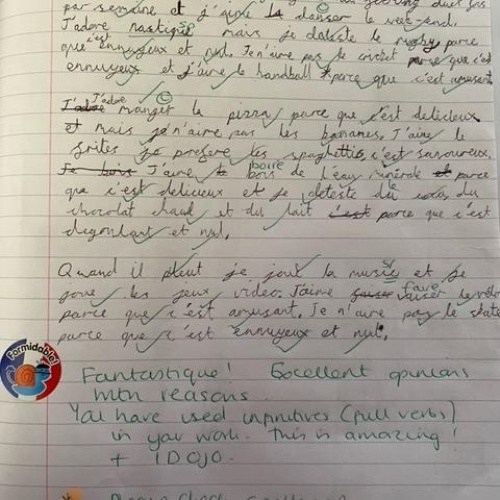 par semaine et j'aime la danser le week-end.
J'adore mais je dateste le rugby parce
que c'est ennuyeux et nul. Je n'aime pas le cricket parce que c'est
ennuyeux et j'aime le handball parce que c'est amusant
J'adore J'adore manger la pizza parce que c'est delicieux
et mais je n'aime pas les bananes. J'aime le
frites je prefere les spaghettis, c'est savoureux.
Je bois J'aime boire bois de l'eau minérale et parce
que c'est delicieux et je deteste du coca, du
chocolat chaud et du lait c'est parce que c'est
degoulant et nul.
Quand il pleut je joue la music et je
joue les jeux video. J'aime faire le vélo
parce que c'est amusant. Je n'aime pas le skate
parce que c'est ennuyeux et nul.
Formidable!
Fantastique! Excellent opinions
with reasons.
You have used infinitives (full verbs)
in your work. This is amazing!
+ 1 DOJO.